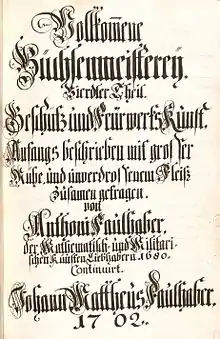 Vollkom̄ene
Büchsenmeisterey.
Vierdter Theil.
Geschütz und Feürwerks Künst.
Anfangs beschrieben mit grosser
Mühe, und unverdrossenem Fleiß
Züsamen getragen.
von
Anthoni Faülhaber,
der Mathematisch- und Militari-
schen Künsten Liebhabern 1680.
Continuirt.
Johann Mattheüs Faülhaber.
1702.